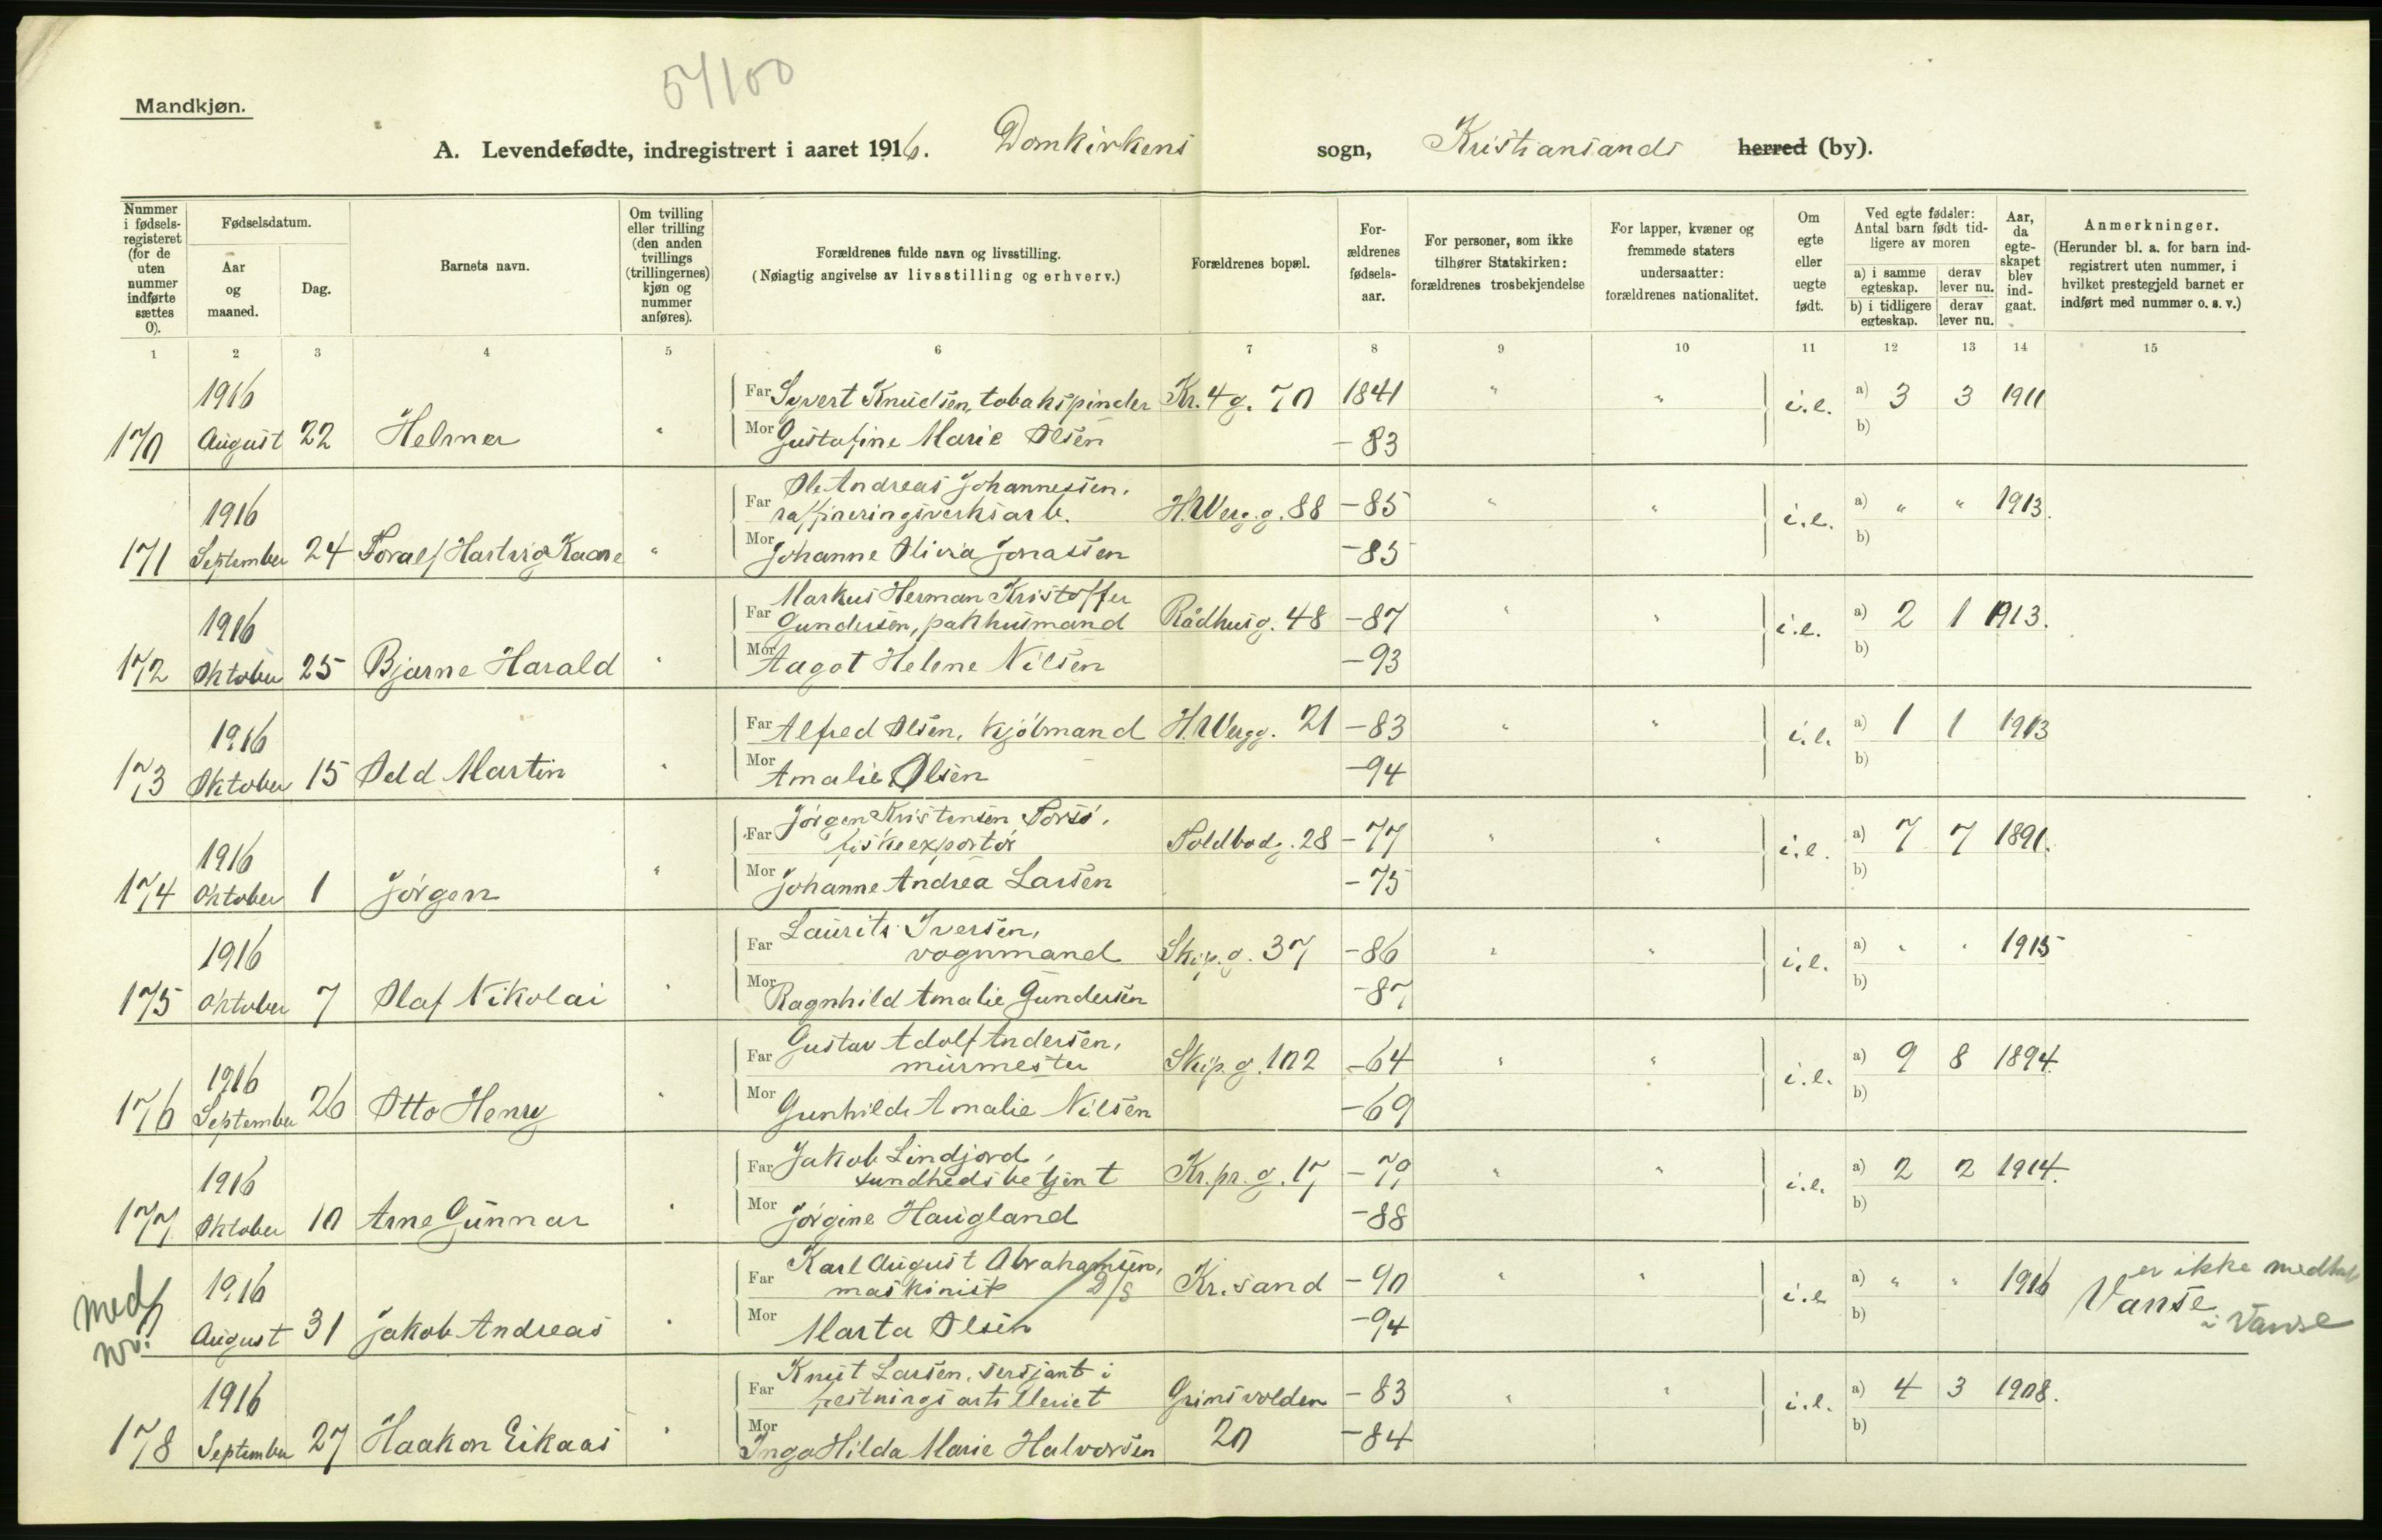 54100
Mandkjøn.
A. Levendefødte, indregistrert i aaret 1916. Domkirkens sogn, Kristiansands herred (by).
Nummer i fødselsregisteret (for de uten nummer indførte sættes 0).
Fødselsdatum.
Aar og maaned.
Dag.
Barnets navn.
Om tvilling eller trilling (den anden tvillings (trillingernes) kjøn og nummer anføres).
Forældrenes fulde navn og livsstilling.
(Nøiagtig angivelse av livsstilling og erhverv.)
Forældrenes bopæl.
Forældrenes fødselsaar.
For personer, som ikke tilhører Statskirken: forældrenes trosbekjendelse
For lapper, kvæner og fremmede staters undersaatter: forældrenes nationalitet.
Om egte eller uegte født.
Ved egte fødsler: Antal barn født tidligere av moren
a) i samme egteskap. derav lever nu.
b) i tidligere egteskap. derav lever nu.
Aar, da egteskapet blev indgaat.
Anmerkninger.
(Herunder bl. a. for barn indregistrert uten nummer, i hvilket prestegjeld barnet er indført med nummer o. s. v.)
1 2 3 4 5 6 7 8 9 10 11 12 13 14 15
1916 Far Syvert Knudsen, tobakspinder Kr. 4 g. 70 1841 " " i.e. a) 3 3 1911
170 August 22 Helmer " Mor Gustafine Marie Olsen -83 b)
Ole Andreas Johannessen,
1916 Far raffineringsverksarb. H. Werg. g. 88 -85 " " i.e. a) " " 1913.
171 September 24 Toralf Hartvig Kaare " Mor Johanne Olivia Jonassen -85 b)
Markus Herman Kristoffer
1916 Far Gundersen, pakhusmand Rådhusg. 48 -87 " " i.e. a) 2 1 1913.
172 Oktober 25 Bjarne Harald " Mor Aagot Helene Nilsen -93 b)
1916 Far Alfred Olsen, kjøbmand H. Wergg. 21 -83 " " i.e. a) 1 1 1913
173 Oktober 15 Odd Martin " Mor Amalie Olsen -94 b)
Jörgen Kristensen Torsö,
1916 Far fiskeexportör Toldbodg. 28 -77 " " i.e. a) 7 7 1891.
174 Oktober 1 Jörgen " Mor Johanne Andrea Larsen -75 b)
Laurits Iversen,
1916 Far vognmand Skip. g. 37 -86 " " i.e. a) " " 1915
175 Oktober 7 Olaf Nikolai " Mor Ragnhild Amalie Gundersen -87 b)
Gustav Adolf Andersen,
1916 Far murmester Skip. g. 102 -64 " " i.e. a) 9 8 1894.
176 September 26 Otto Henry " Mor Gunhilde Amalie Nilsen -69 b)
Jakob Lindjord,
1916 Far sundhedsbetjent Kr. pr. g. 17 -79 " " i.e. a) 2 2 1914.
177 Oktober 10 Arne Gunnar " Mor Jörgine Haugland -88 b)
Karl August Abrahamsen, er ikke
1916 Far maskinist D/S Kr. sand -90 " " i.e. a) " " 1916 Vanse
August 31 Jakob Andreas " Mor Marta Olsen -94 b) i Vanse
Knut Larsen, sersjant i
1916 Far festningsartilleriet Grimsvolden -83 " " i.e. a) 4 3 1908.
178 September 27 Haakon Eikaas " Mor Inga Hilda Marie Halvorsen 20 -84 b)